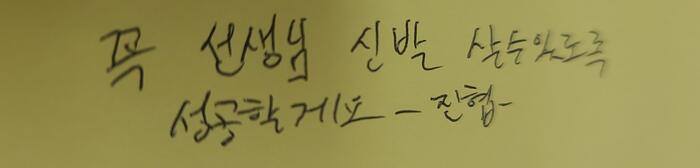 꼭 선생님 신발 살수있도록
성공할게요 - 진협-